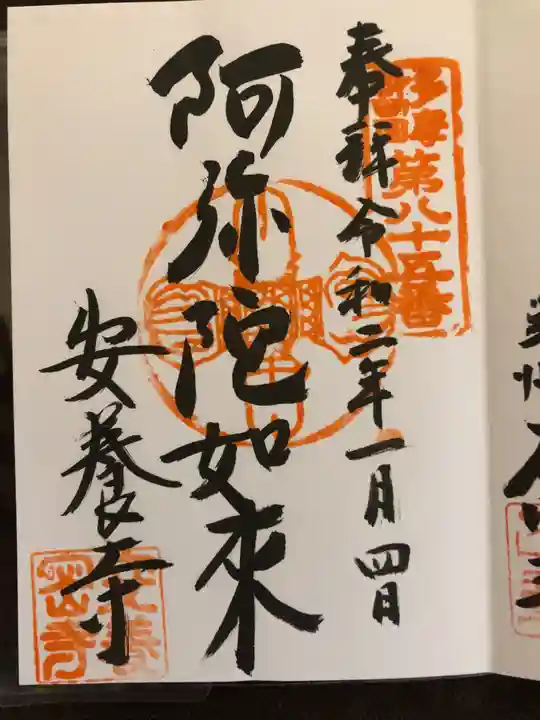 奉拝 令和二年一月四日
第八十五番
阿弥陀如来
安養寺